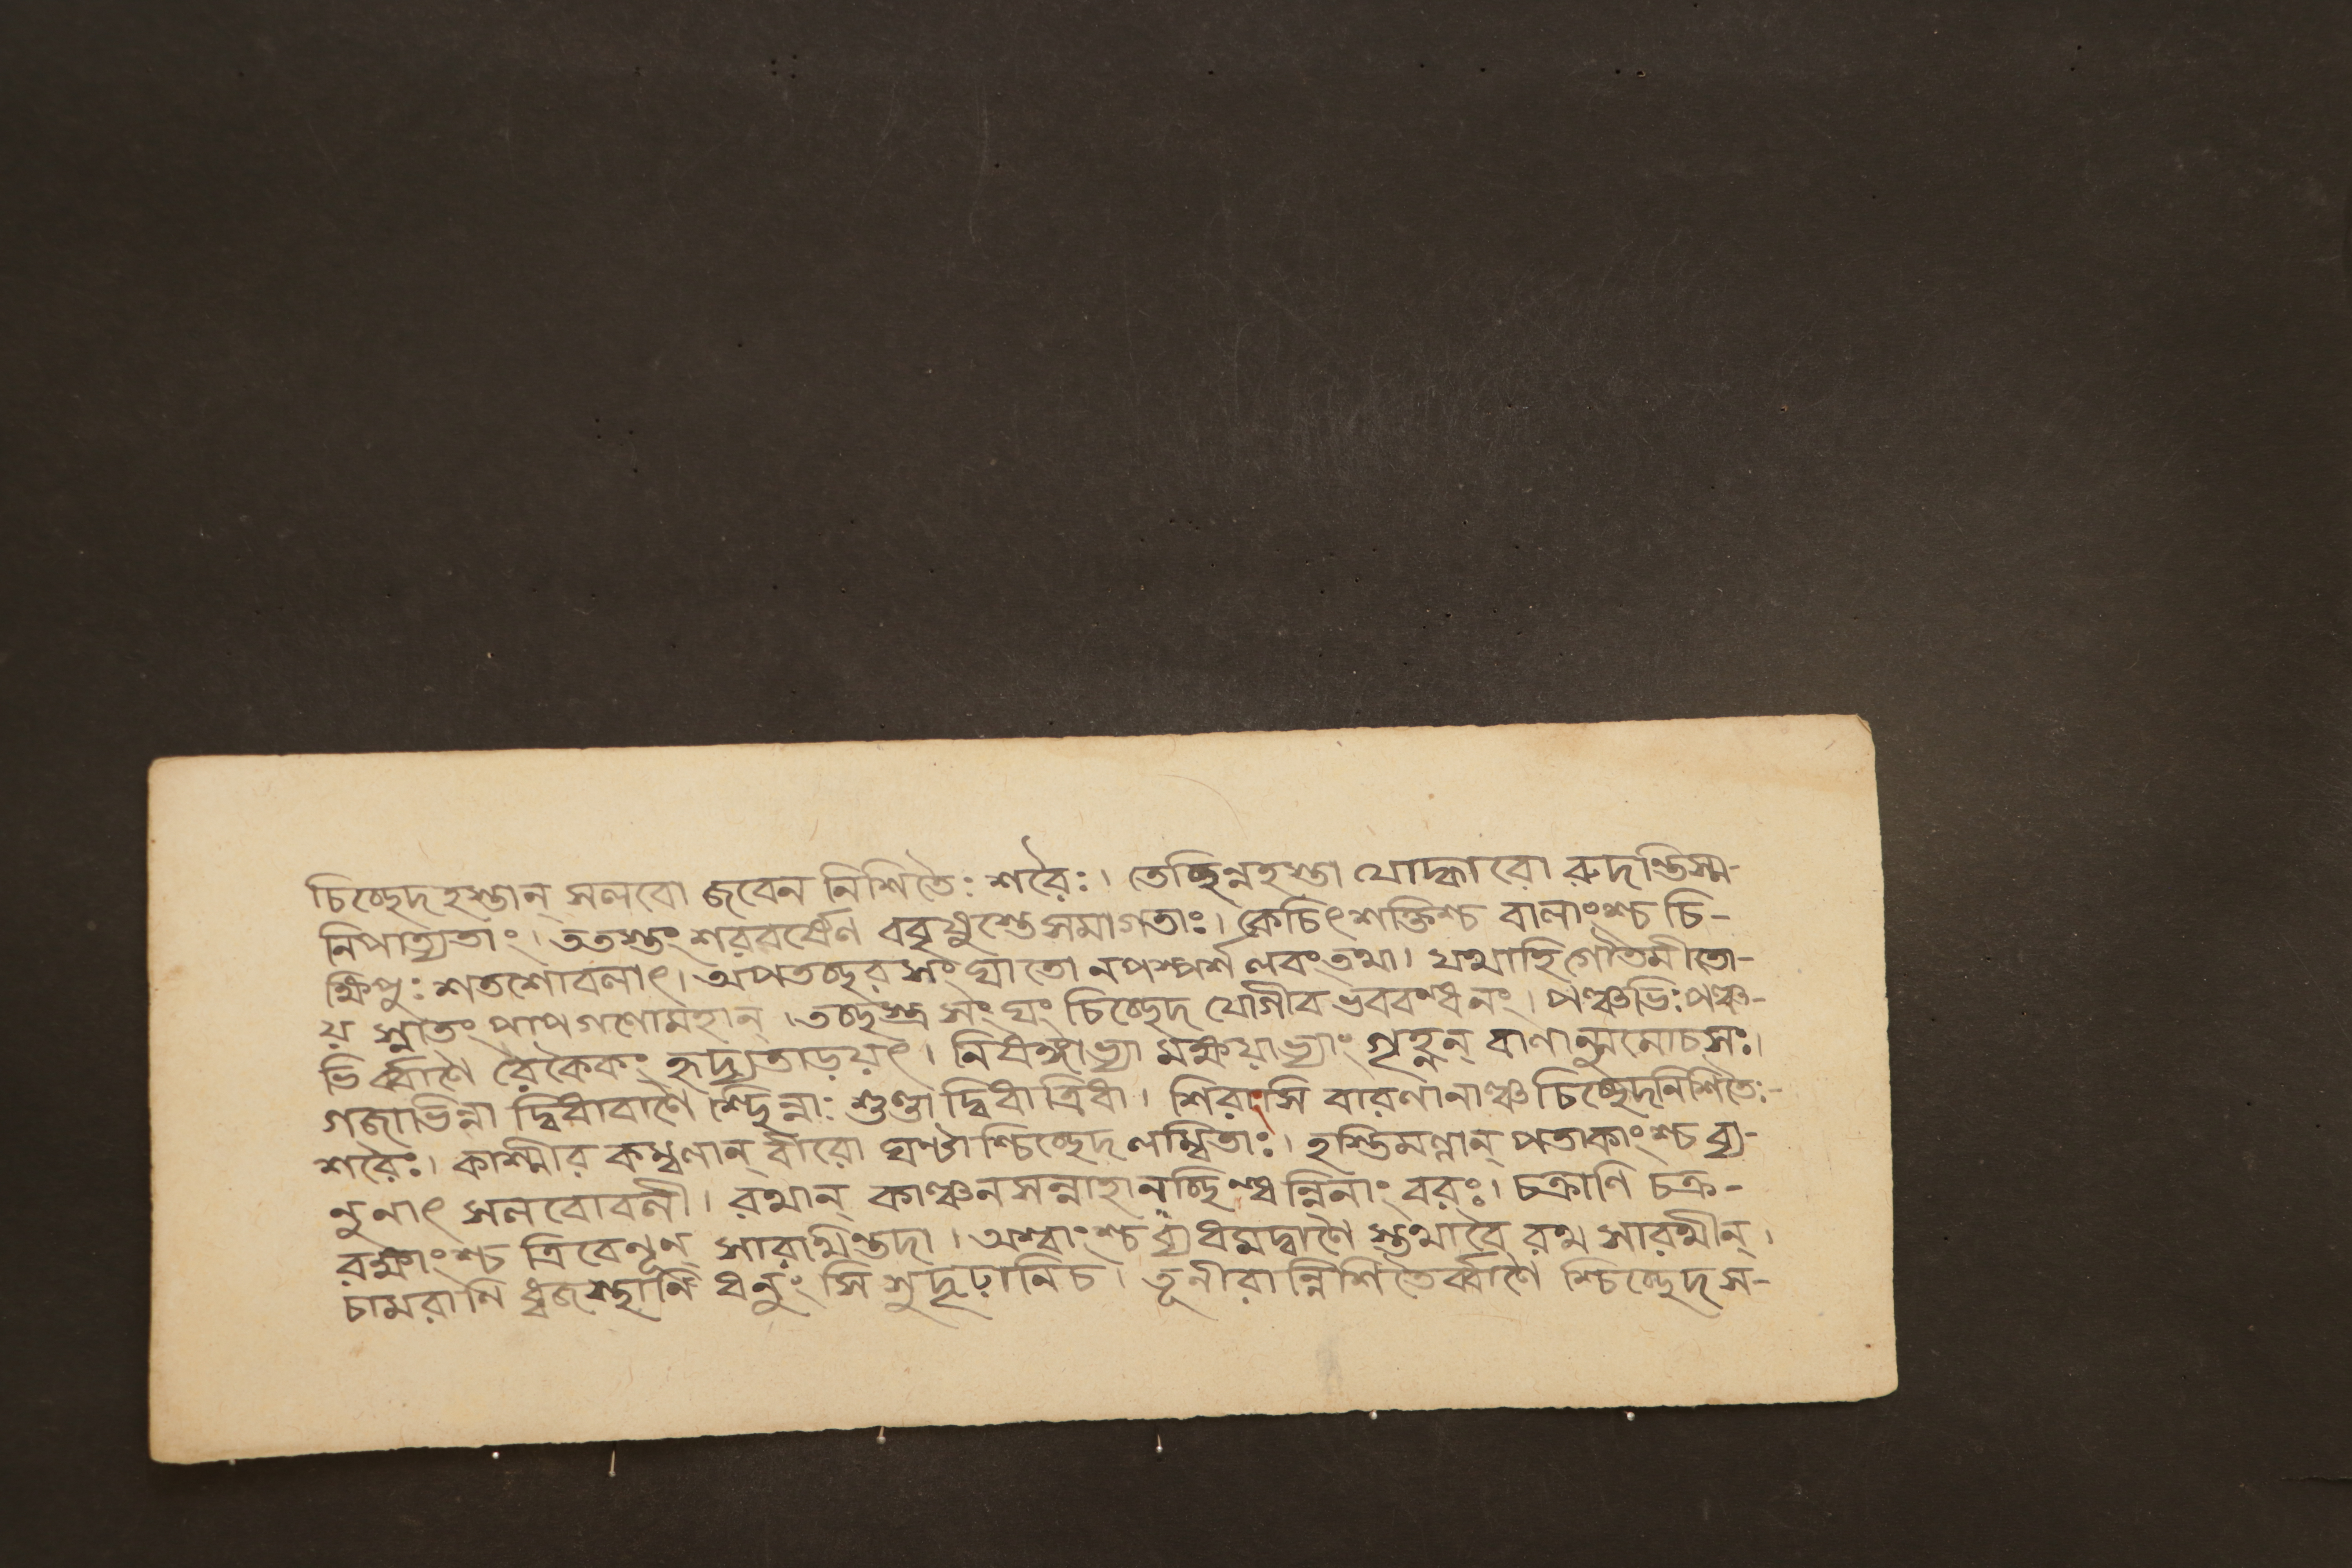 চিচ্ছেদহস্তান্ সলবো জবেন নিশিতৈঃ শরৈঃ। তেচ্ছিন্নহস্তা যোদ্ধারো রুদন্তিস্ম-
নিপাত্যতাং। ততস্তং শরবর্ষেণ ববৃষুস্তেসমাগতাঃ। কেচিৎশক্তিশ্চ বালাংশ্চ চি-
ক্ষিপুঃ শতশোবলাৎ। অপতচ্ছরসংঘাতো নপস্পর্শ লবংতথা। যথাহিগৌতমীতো-
য় স্নাতং পাপগণোমহান্। তচ্ছস্ত্র সংঘং চিচ্ছেদ যোগীব ভববন্ধনং। পঞ্চভিঃপঞ্চ-
ভির্ব্বাণৈ রৈকৈকং হৃদ্যতাড়য়ৎ। নিষঙ্গাভ্যা মক্ষয়াভ্যাং গৃহ্ণন্ বাণান্মুমোচসঃ।
গজাভিন্না দ্বিধাবাণৈ শ্ছিন্নাঃ শুণ্ডা দ্বিধাত্রিধা। শিরাংসি বারণানাঞ্চ চিচ্ছেদনিশিতৈঃ-
শরৈঃ। কাশ্মীর কম্বলান্ বীরো ঘণ্টাশ্চিচ্ছেদ লম্বিতাঃ। হস্তিমল্লান্ পতাকাংশ্চ ব্যু-
নুনাৎ সলবোবলী। রথান্ কাঞ্চনসন্নাহানচ্ছিনদ্ধন্বিনাং বরঃ। চক্রাণি চক্র-
রক্ষাংশ্চ ত্রিবেনূন্ সারথিংস্তদা। অশ্বাংশ্চ ব্যধমদ্বাণৈ স্তথাবৈ রথ সারথীন্।
চামরাণি ধ্বজস্থানি ধনুংসি সুদৃঢ়ানিচ। তূনীরান্নিশিতৈর্ব্বাণৈ শ্চিচ্ছেদ স-